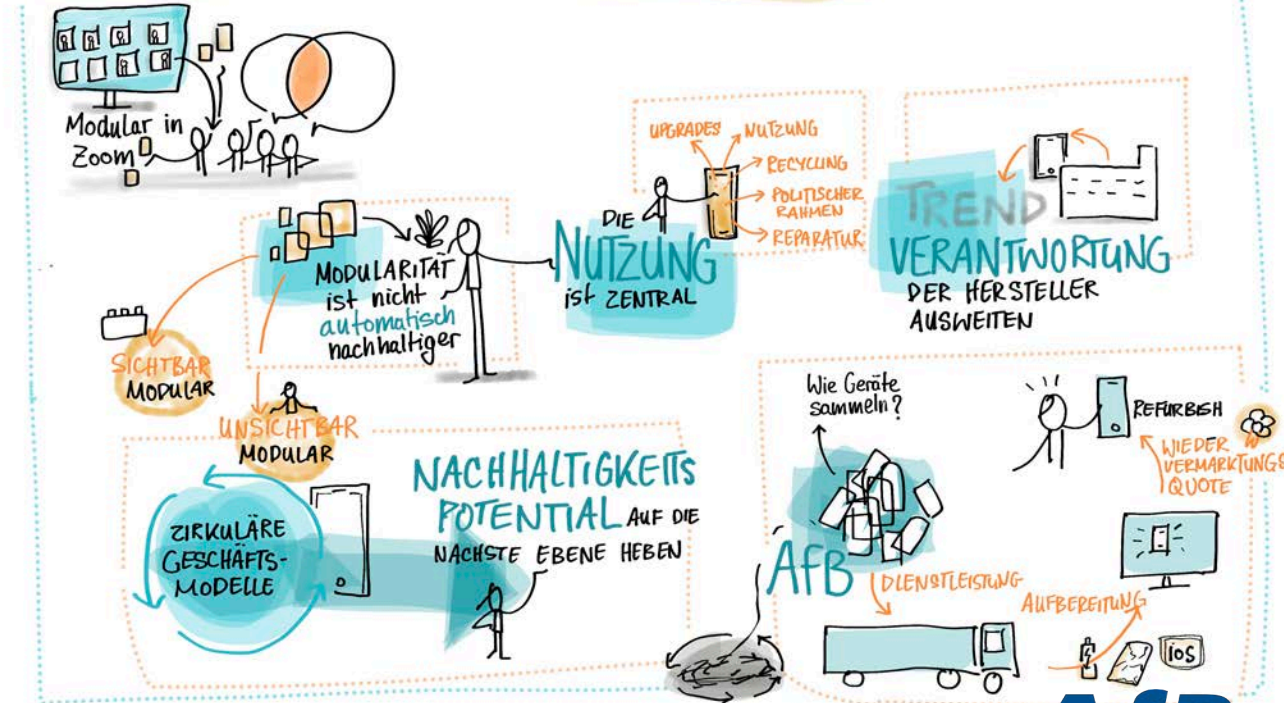 Modular in
Zoom
MODULARITÄT
ist nicht
automatisch
nachhaltiger
SICHTBAR
MODULAR
UNSICHTBAR
MODULAR
DIE
NUTZUNG
ist ZENTRAL
UPGRADES
NUTZUNG
RECYCLING
POLITISCHER
RAHMEN
REPARATUR
TREND
VERANTWORTUNG
DER HERSTELLER
AUSWEITEN
ZIRKULÄRE
GESCHÄFTS-
MODELLE
NACHHALTIGKEITS
POTENTIAL AUF DIE
NÄCHSTE EBENE HEBEN
Wie Geräte
sammeln?
AfB
DIENSTLEISTUNG
AUFBEREITUNG
iOS
REFURBISH
WIEDER
VERMARKTUNGS
QUOTE
AfB